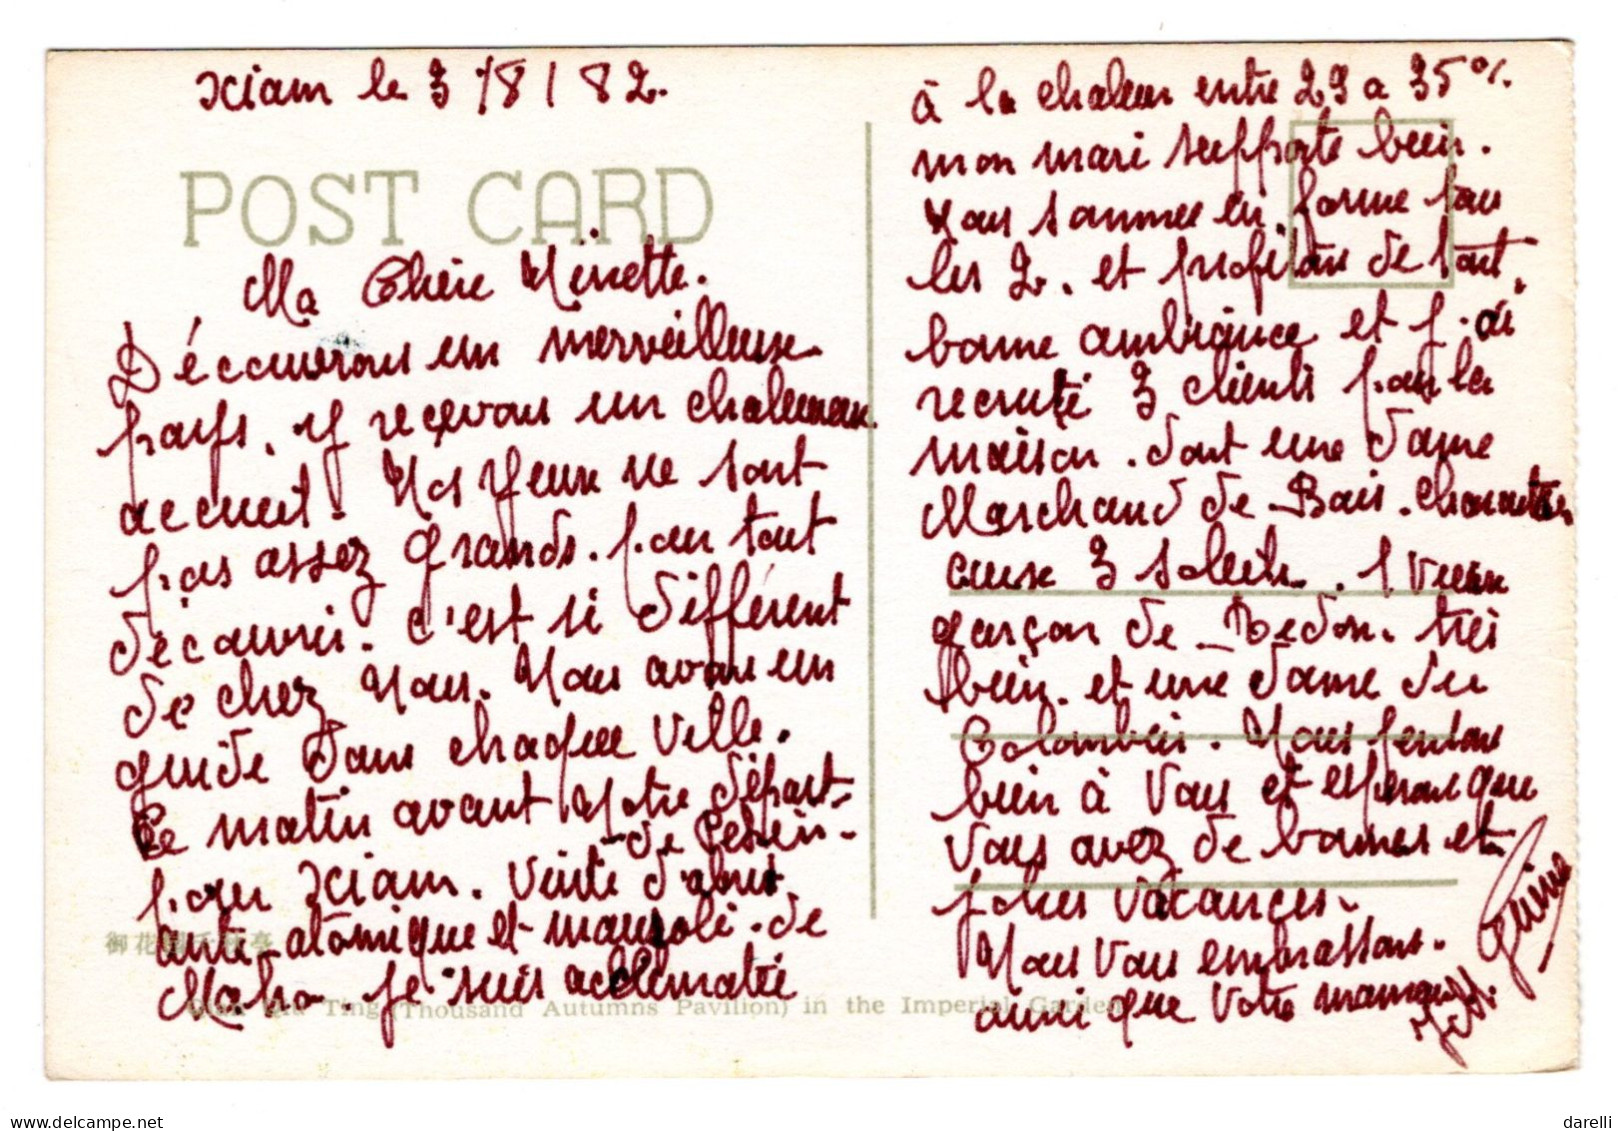 xiam le 3/8/82.
POST CARD
Ma Chère Minette.
Découvrons un merveilleux
pays, y reçevons un chaleureux
accueil. Nos yeux ne sont
pas assez grands. pour tout
découvrir. c'est si différent
de chez Nous. Nous avons un
guide dans chaque ville.
Ce matin avant Notre départ
de Pekin-
pour xiam. visite d'abris
anti-atomique et mausolé. de
Maho. je suis acclimatée
御花園千秋亭
Qian Qiu Ting (Thousand Autumns Pavilion) in the Imperial Garden
à la chaleur entre 29 a 35°/.
mon mari supporte bien.
Nous sommes en forme tous
les 2. et profitons de tout.
bonne ambiance et j'ai
recruté 3 clients pour la
maison. dont une dame
Marchand de Bois.
ceux 3 soleils. 1 vieux
garçon de Redon. très
bien. et une dame du
Colombier. Nous pensons
bien à Vous et espérons que
Vous avez de bonnes et
jolies vacances.
Nous Vous embrassons.
ainsi que Votre maman